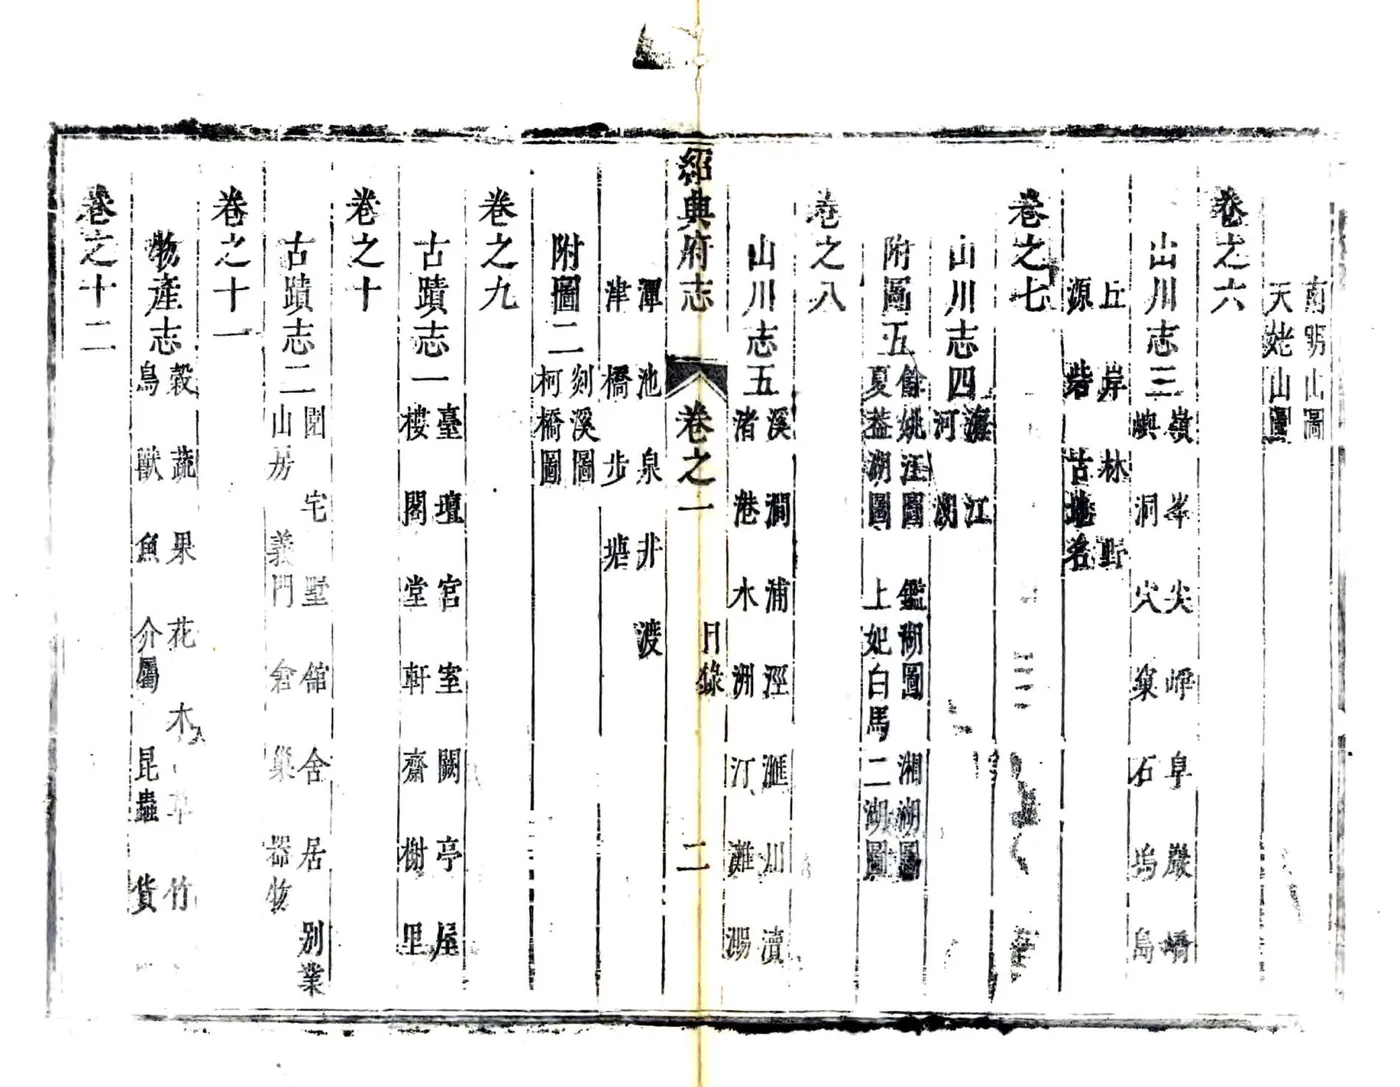 南明山圖
天姥山圖
卷之六
山川志三
嶺 峯 尖 崢 阜 巖 嶠
嶼 洞 穴 窠 石 塢 島
丘 岸 林 野
源 砦 古地名
卷之七
山川志四
海 江
河 湖
附圖五
餘姚江圖 鑑湖圖 湘湖圖
夏蓋湖圖 上妃白馬二湖圖
卷之八
山川志五
溪 澗 浦 涇 滙 川 瀆
渚 港 水 洲 汀 灘 湯
紹興府志 卷之一 目錄 二
潭 池 泉 井 渡
津 橋 步 塘
附圖二
剡溪圖
柯橋圖
卷之九
古蹟志一
臺 壇 宮 室 闕 亭 屋
樓 閣 堂 軒 齋 榭 里
卷之十
古蹟志二
園 宅 墅 館 舍 居 別業
山房 義門 倉 巢 器物
卷之十一
物產志
穀 蔬 果 花 木 草 竹
鳥 獸 魚 介屬 昆蟲 貨
卷之十二